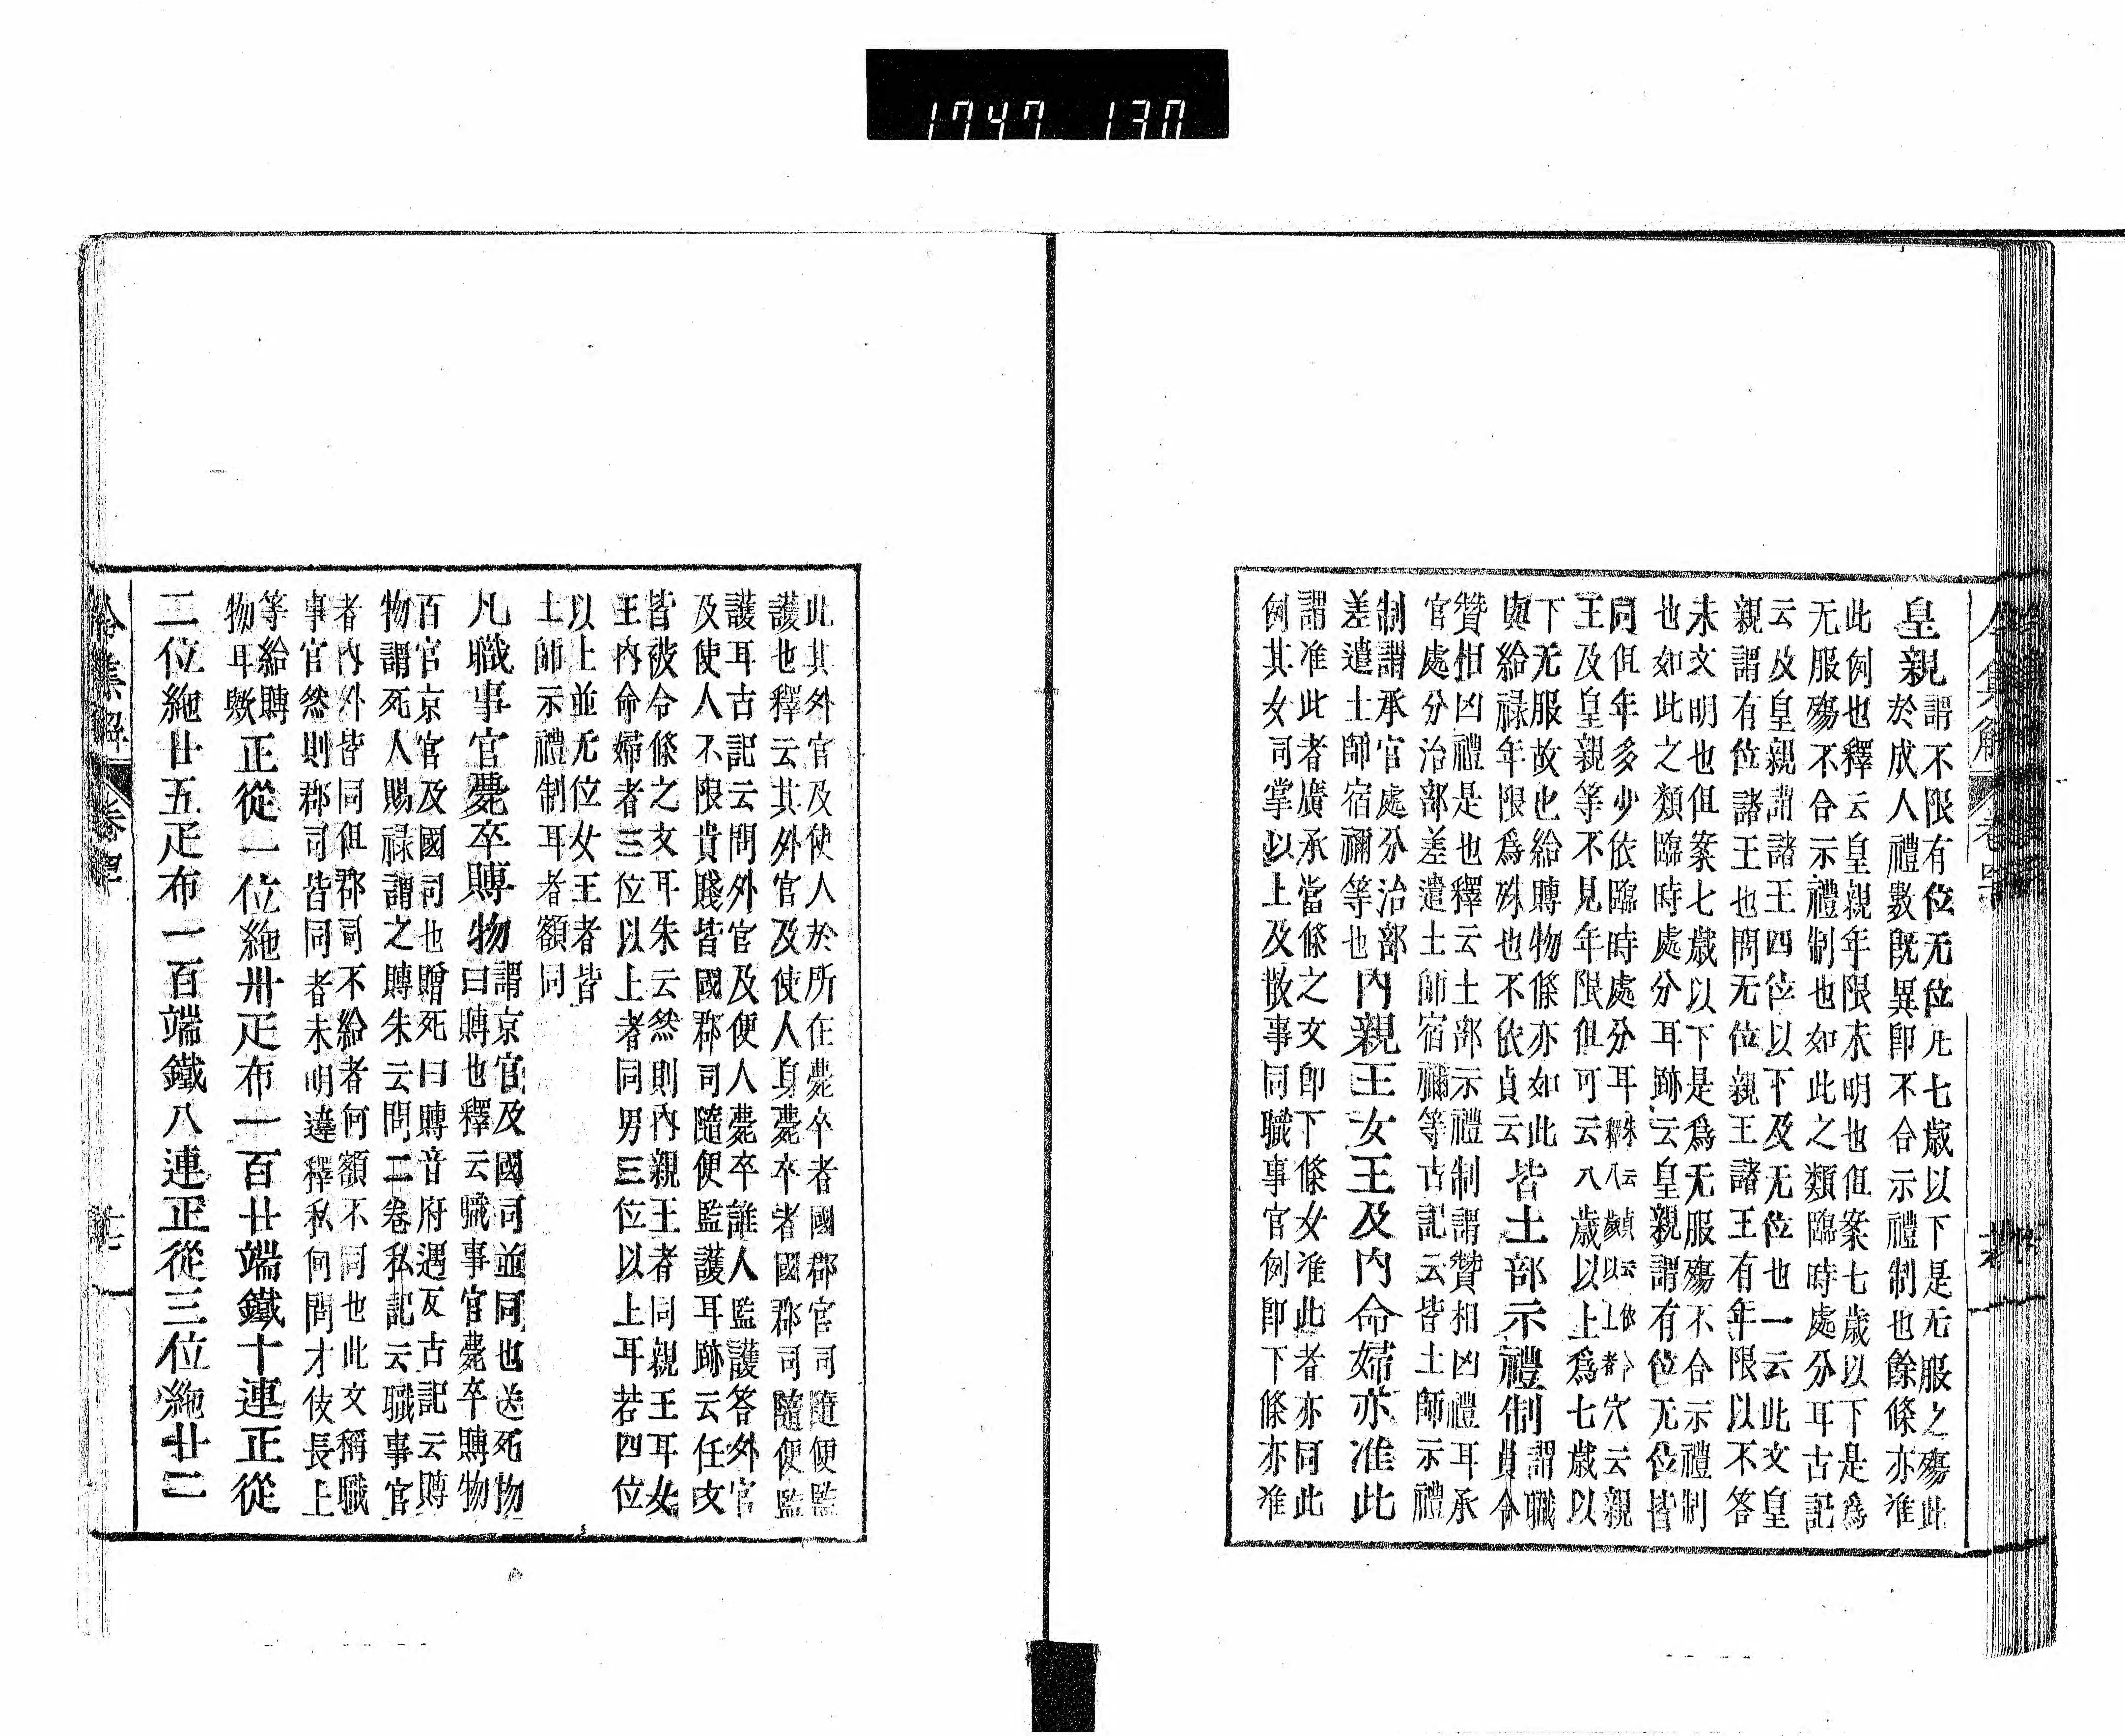 1747 130
皇親
謂不限有位无位凡七歲以下是无服之殤此
於成人禮數既異即不合示禮制也餘條亦准
此例也釋云皇親年限未明也但案七歲以下是爲
无服殤不合示禮制也如此之類臨時處分耳古記
云及皇親謂諸王四位以下及无位也一云此文皇
親謂有位諸王也問无位親王諸王有年限以不答
未文明也但案七歲以下是爲无服殤不合示禮制
也如此之類臨時處分耳跡云皇親謂有位无位皆
同但年多少依臨時處分耳朱云貞云依令釋八歲以上者穴云親
王及皇親等不見年限但可云八歲以上爲七歲以
下无服故也給賻物條亦如此
與給祿年限爲殊也不依貞云
皆土部示禮制
謂職
員令
贊相凶禮是也釋云土部示禮制謂贊相凶禮耳承
官處分治部差遣土師宿禰等古記云皆土師示禮
制謂承官處分治部
差遣土師宿禰等也
內親王女王及內命婦亦准此
謂准此者廣承當條之文即下條女准此者亦同此
例其女司掌以上及散事同職事官例即下條亦准
此其外官及使人於所在薨卒者國郡官司隨便監
護也釋云其外官及使人身薨卒者國郡司隨便監
護耳古記云問外官及使人薨卒誰人監護答外官
及使人不限貴賤皆國郡司隨便監護耳跡云任文
皆被令條之文耳朱云然則內親王者同親王耳女
王內命婦者三位以上者同男三位以上耳若四位
以上並无位女王者皆
土師示禮制耳者額同
凡職事官薨卒賻物
謂京官及國司並同也送死物
曰賻也釋云職事官薨卒賻物
百官京官及國司也贈死曰賻音府遇反古記云賻
物謂死人賜祿謂之賻朱云問二卷私記云職事官
者內外皆同但郡司不給者何額不同也此文稱職
事官然則郡司皆同者未明違釋私何問才伎長上
等給賻
物耳歟
正從一位絁卅疋布一百廿端鐵十連正從
二位絁廿五疋布一百端鐵八連正從三位絁廿二
令集解 卷四